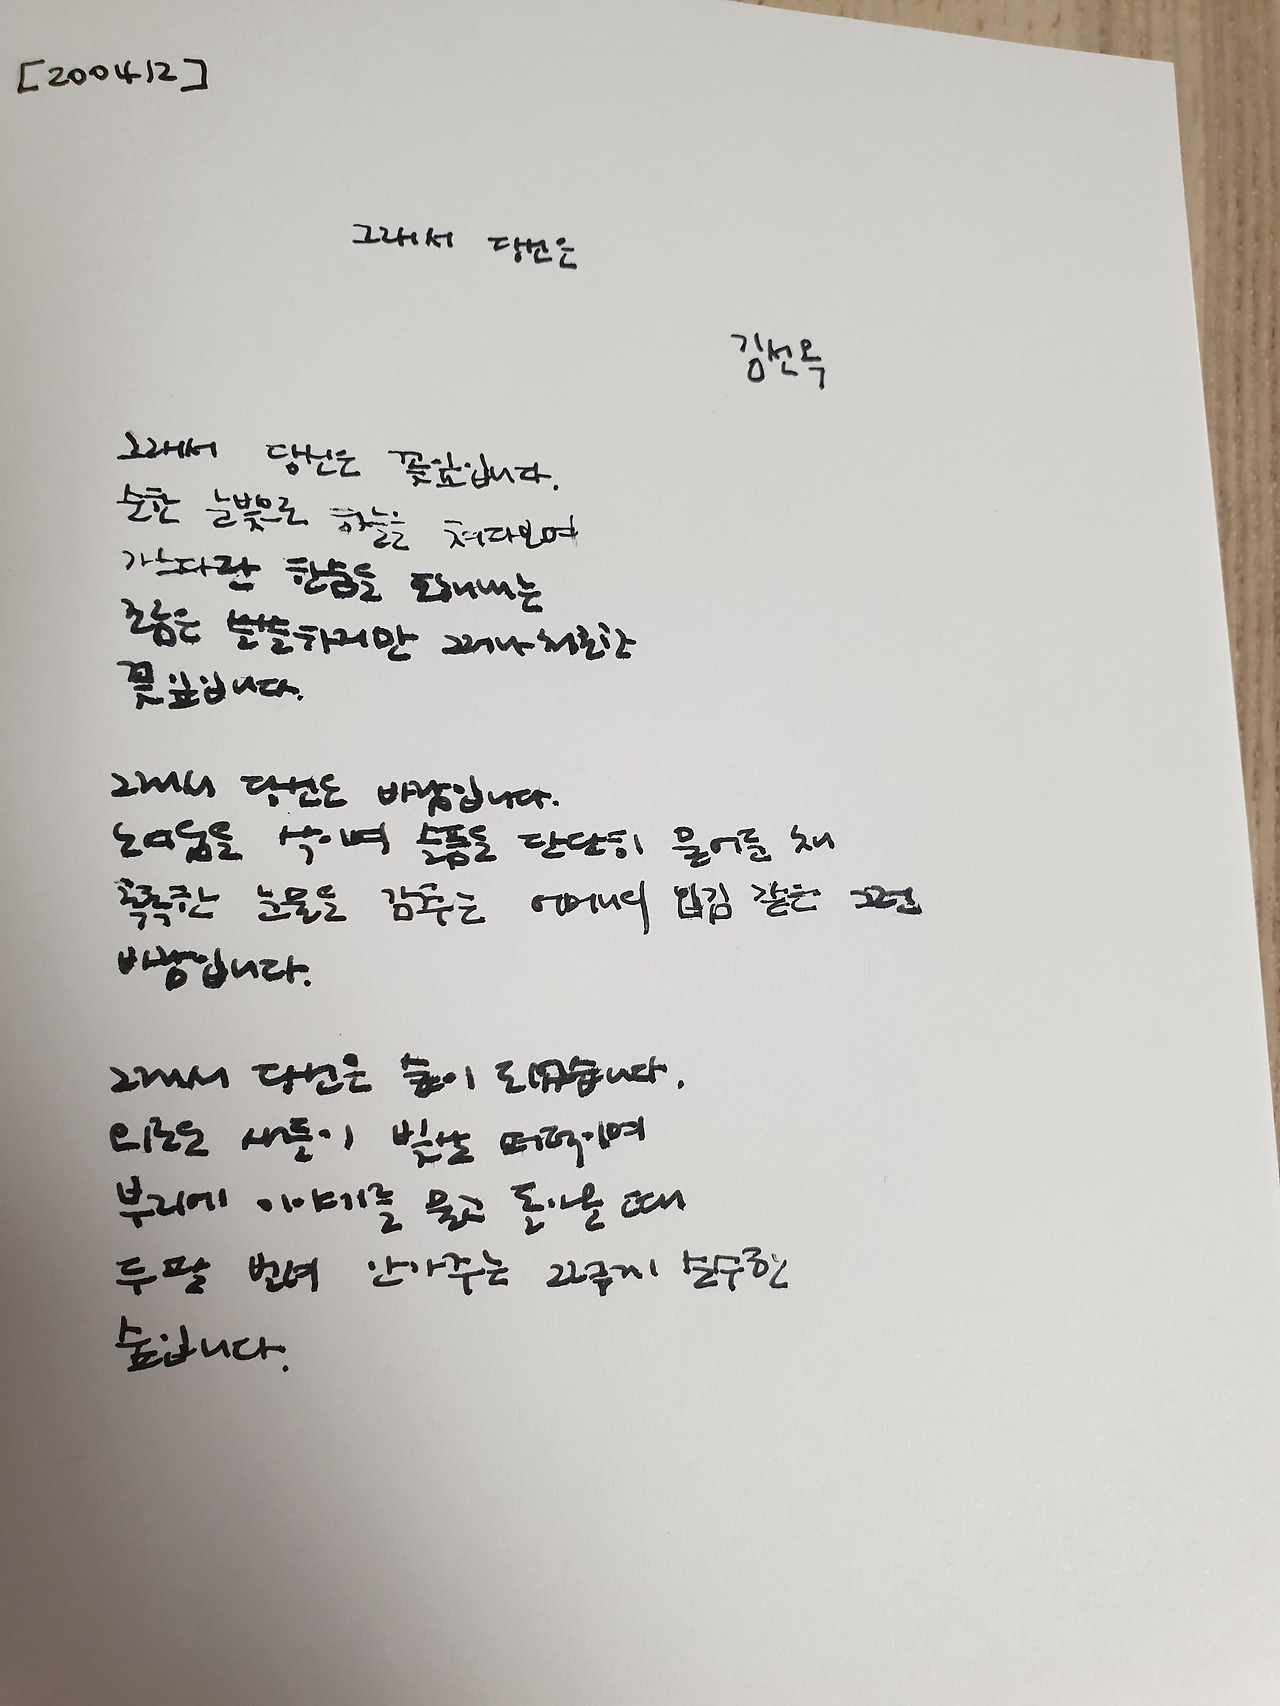 [200412]
그래서 당신은
김선옥
그래서 당신은 꽃잎입니다.
순한 눈빛으로 하늘을 쳐다보며
가느다란 한숨을 토해내는
조금은 쓸쓸하지만 그러나 처연한
꽃잎입니다.
그래서 당신은 바람입니다.
노여움을 삭이며 슬픔을 단단히 물어둔 채
촉촉한 눈물을 감추는 어머니의 입김 같은 그런
바람입니다.
그래서 당신은 숲이 되었습니다.
외로운 새들이 빛살 퍼덕이며
부리에 이야기를 물고 돌아올 때
두 팔 벌려 안아주는 순수한
숲입니다.